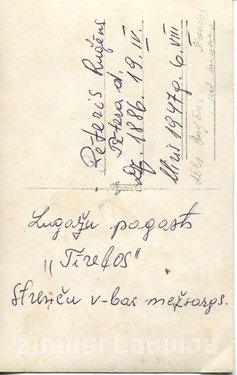 Pēteris Ruģēns
Pētera d.
Dz. 1886. 19. IV.
Miris 1947 g. 6. VIII
dēls
Lugažu pagasts
„Tīreļos"
Strenču v-bas mežsargs.